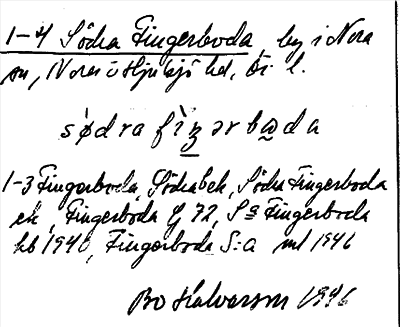 1-4 Södra Fingerboda, by i Nora
sn, Nora o Hjulsjö hd, Ör. l.
sø̀dra fìŋərbωda
1-3 Fingerboda, Södra bek, Södra Fingerboda
ek, Fingerboda G 72, Sa Fingerboda
hb 1940, Fingerboda S:a ml 1946
Bo Halvarson 1946